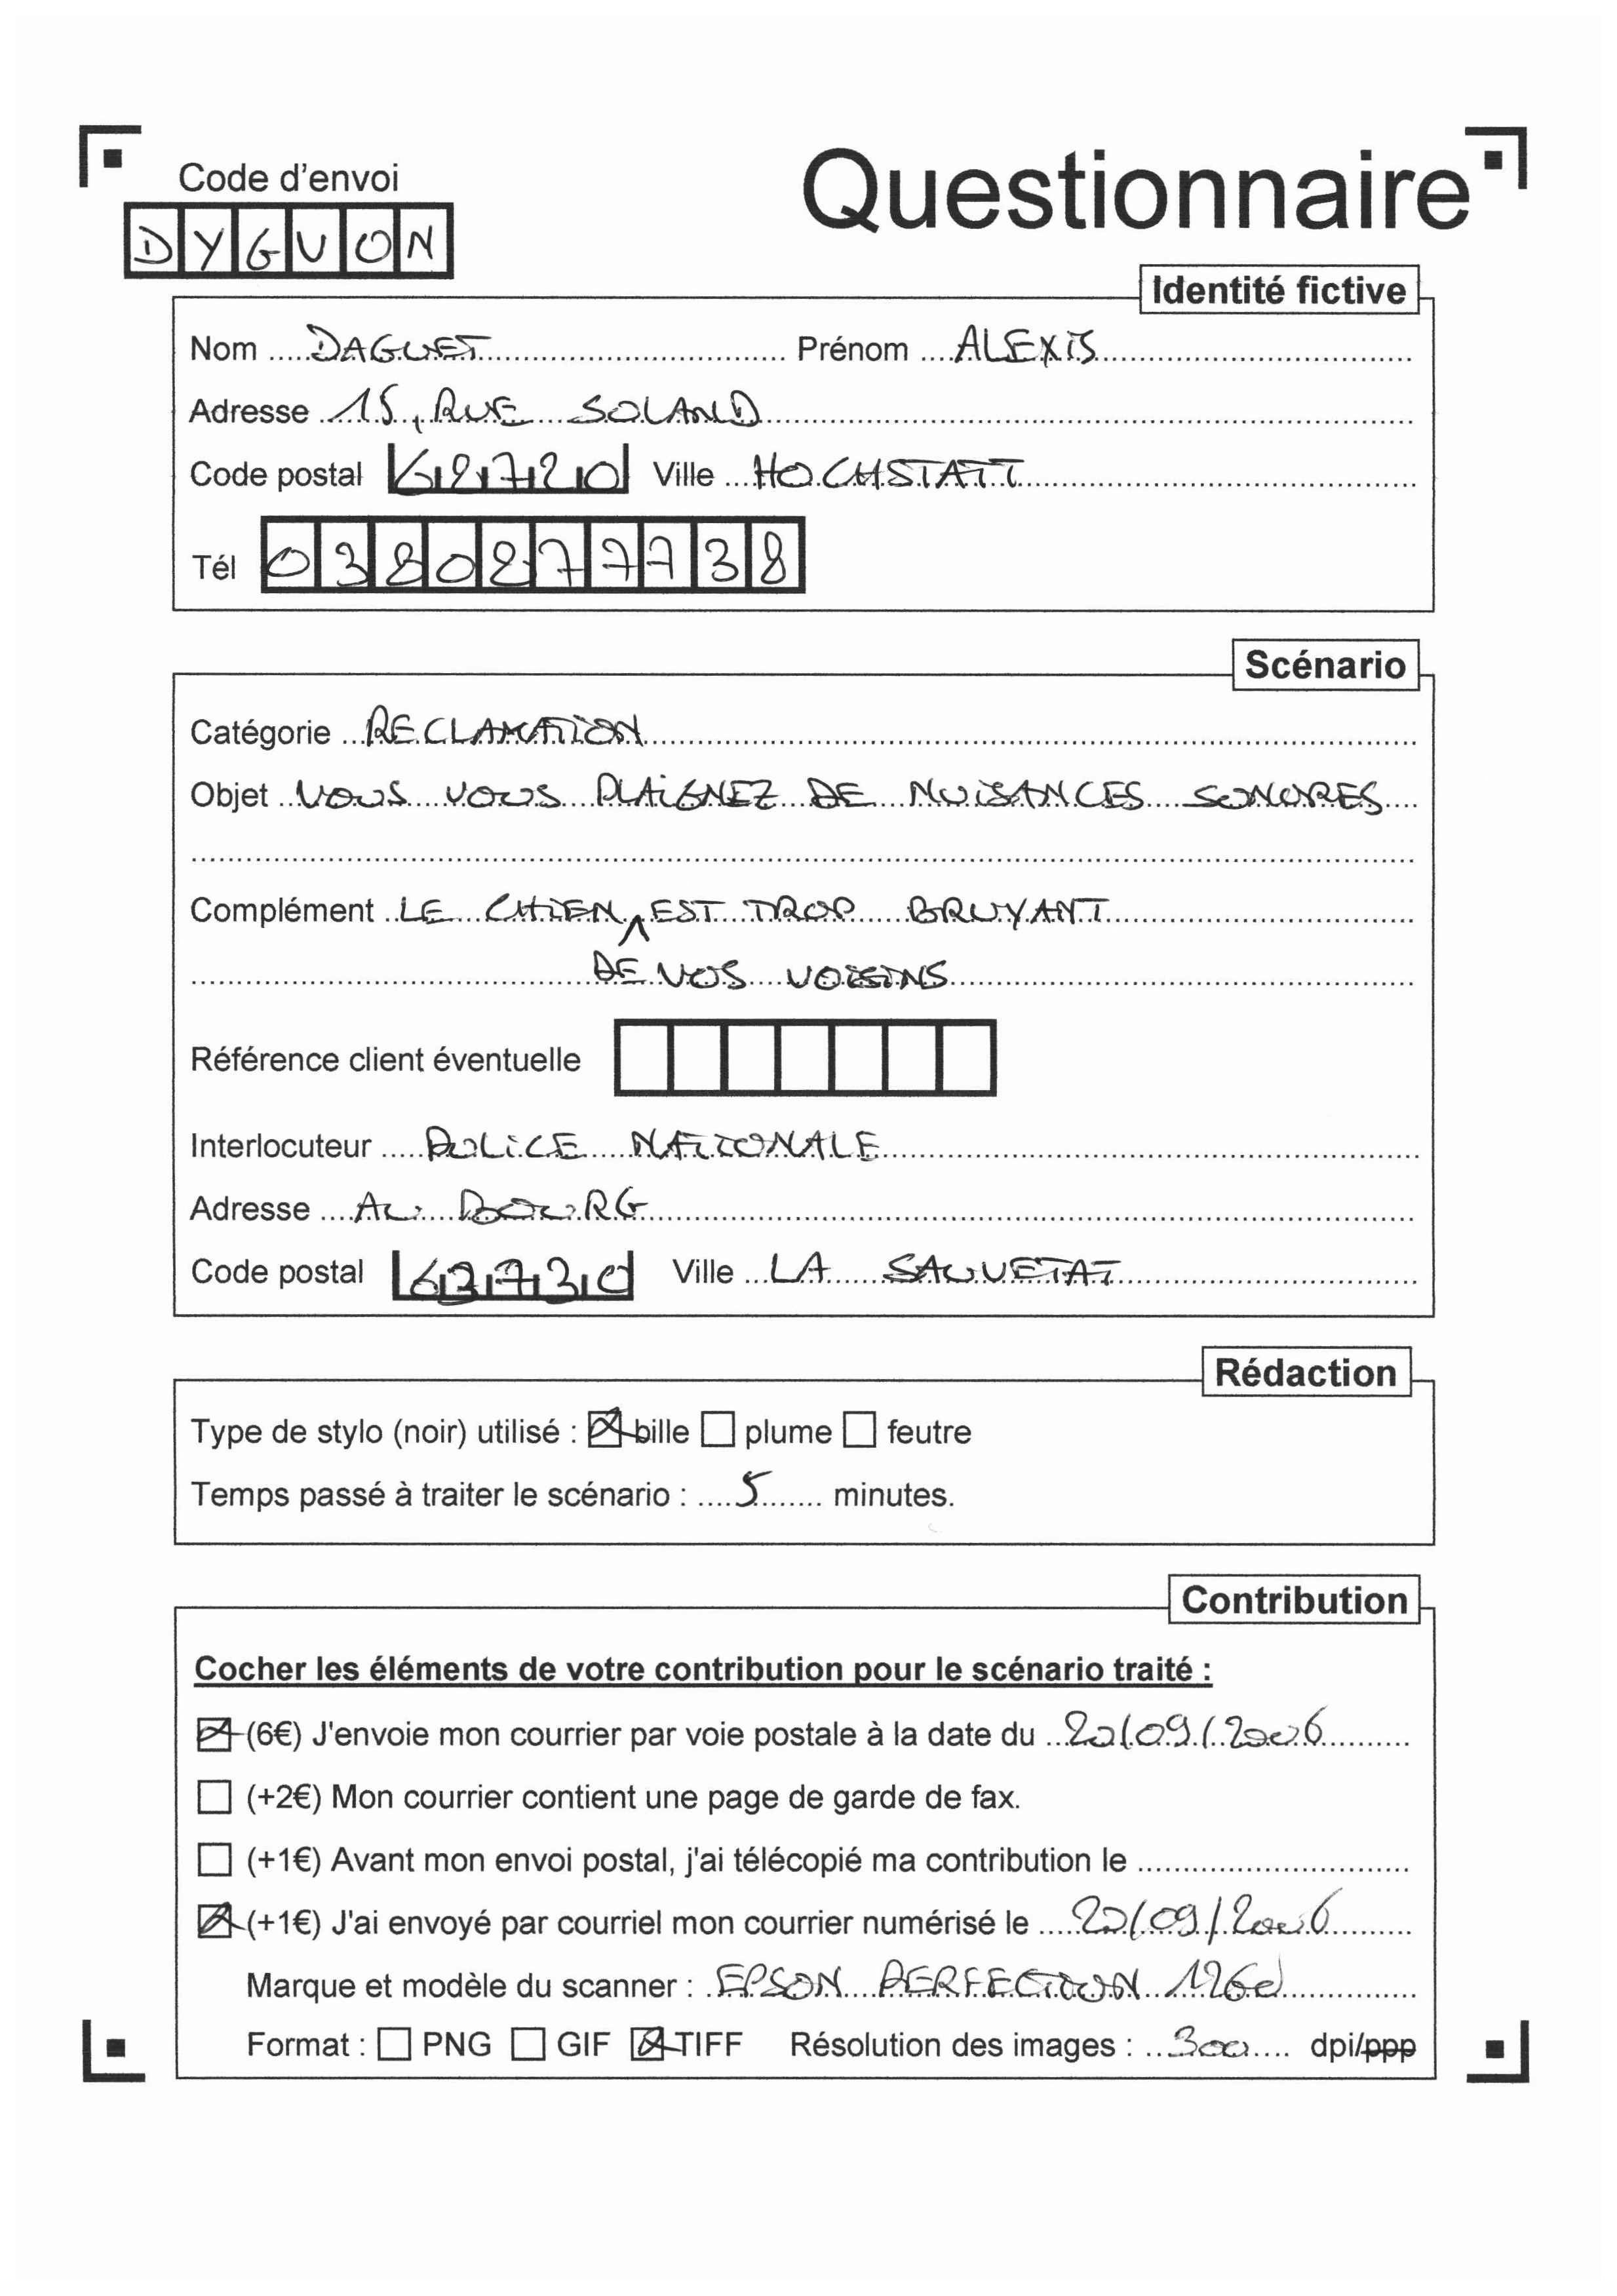 Code d'envoi
Questionnaire
DYGUON
Identité fictive
Nom DAGUET Prénom ALEXIS
Adresse 15, RUE SOLAND
Code postal 62720 Ville HOCHSTATT
Tél 0380277738
Scénario
Catégorie RECLAMATION
Objet VOUS VOUS PLAIGNEZ DE NUISANCES SONORES
Complément LE CHIEN EST TROP BRUYANT
DE VOS VOISINS
Référence client éventuelle
Interlocuteur POLICE NATIONALE
Adresse AU BOURG
Code postal 63730 Ville LA SAUVETAT
Rédaction
Type de stylo (noir) utilisé : bille plume feutre
Temps passé à traiter le scénario : 5 minutes.
Contribution
Cocher les éléments de votre contribution pour le scénario traité :
(6€) J'envoie mon courrier par voie postale à la date du 20/09/2006
(+2€) Mon courrier contient une page de garde de fax.
(+1€) Avant mon envoi postal, j'ai télécopié ma contribution le
(+1€) J'ai envoyé par courriel mon courrier numérisé le 20/09/2006
Marque et modèle du scanner : EPSON PERFECTION 1260
Format : PNG GIF TIFF Résolution des images : 300 dpi/ppp